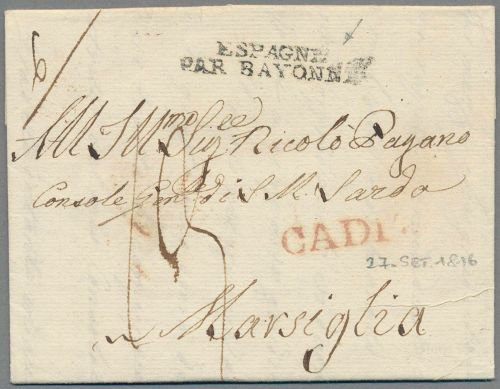 ESPAGNE
PAR BAYONNE
All Illmo Sig.re Nicolo Pagano
Console Genle di S. M. Sarda
CADIZ
27. SET. 1816
Marsiglia